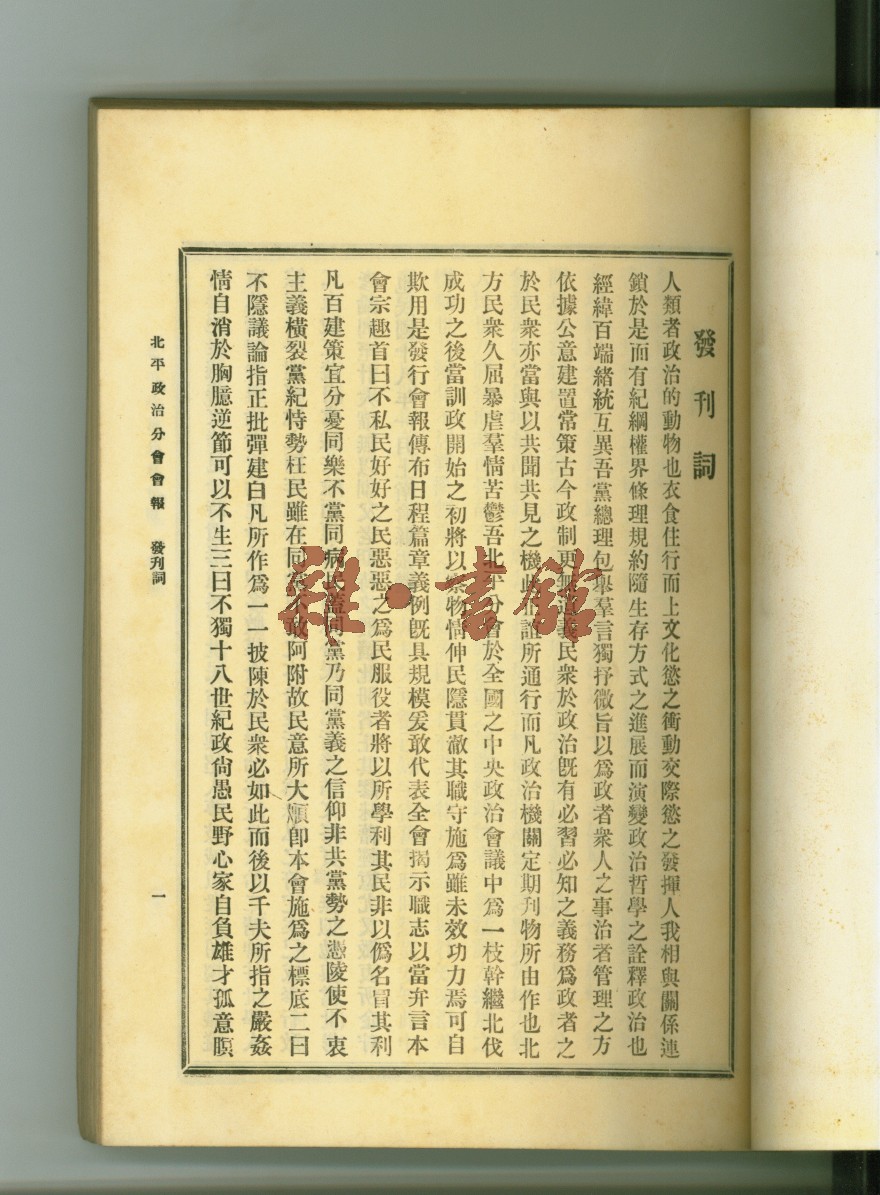 發刊詞
人類者政治的動物也衣食住行而上文化慾之衝動交際慾之發揮人我相與關係連
鎖於是而有紀綱權界條理規約隨生存方式之進展而演變政治哲學之詮釋政治也
經緯百端緒統互異吾黨總理包舉羣言獨抒微旨以爲政者衆人之事治者管理之方
依據公意建置常策古今政制更無道義民衆於政治旣有必習必知之義務爲政者之
於民衆亦當與以共聞共見之機此誰所通行而凡政治機關定期刊物所由作也北
方民衆久屈暴虐羣情苦鬱吾北平分會於全國之中央政治會議中爲一枝幹繼北伐
成功之後當訓政開始之初將以察物情伸民隱貫澈其職守施爲雖未效功力焉可自
欺用是發行會報傳布日程篇章義例旣具規模爰敢代表全會揭示職志以當弁言本
會宗趣首曰不私民好好之民惡惡之爲民服役者將以所學利其民非以僞名冒其利
凡百建策宜分憂同樂不黨同病民蓋同黨乃同黨義之信仰非共黨勢之憑陵使不衷
主義橫裂黨紀恃勢枉民雖在同黨不敢阿附故民意所大順卽本會施爲之標底二曰
不隱議論指正批彈建白凡所作爲一一披陳於民衆必如此而後以千夫所指之嚴姦
情自消於胸臆逆節可以不生三曰不獨十八世紀政尙愚民野心家自負雄才孤意
北平政治分會會報 發刊詞
一
雜·書館